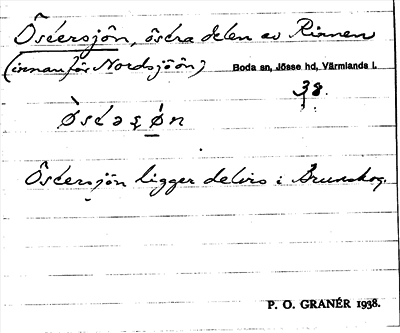 Östersjön, östra delen av Rinnen
(innanför Nordsjöön)
Boda sn, Jösse hd, Värmlands l.
38.
Östersjön ligger delvis i Brunskog.
P. O. GRANÉR 1938.